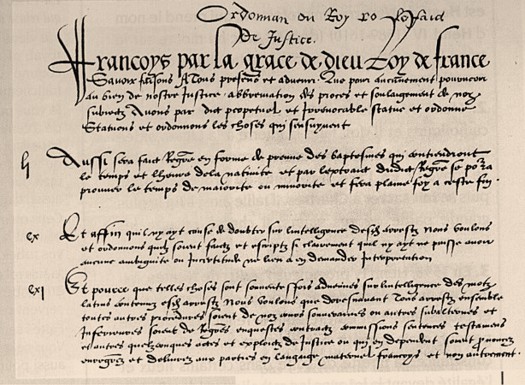 Ordonnan du Roy po le faict
De Justice.
Francoys par la grace de dieu Roy de france
Savoir faisons A Tous presens et advenir Que pour aucunement pourveoir
au bien de nostre Justice abbreviation des proces et soulagement de noz
subiectz Avons par dict perpetuel et irrevocable statue et ordonne
Statuons et ordonnons les choses qui sensuyvent
li Aussi sera faict Regre en forme de preuve des baptesmes qui contiendront
le temps et lheure de la nativite et par lextraict dudict Regre se pora
prouver le temps de maiorite ou minorite et fera plaine foy a ceste fin.
cx Et affin quil ny ayt cause de doubter sur lintelligence desd arrestz Nous voulons
et ordonnons quilz soient faictz et escriptz si clairement quil ny ayt ne puisse avoir
aucune ambiguite ou Incertitude ne lieu a en demander Interpretation
cxi Et pource que telles choses sont souventesfois advenues sur lintelligence des motz
latins contenuz esd arrestz Nous voulons que doresnavant Tous arrestz ensemble
toutes autres procedures soient de noz cours souveraines ou autres subalternes et
Inferieures soient de Regres enquestes contractz commissions sentences testamens
et autres quelzconques actes et exploictz de Justice ou qui en dependent soient prononcez
enregrez et delivrez aux parties en langage maternel francoys et non autrement.